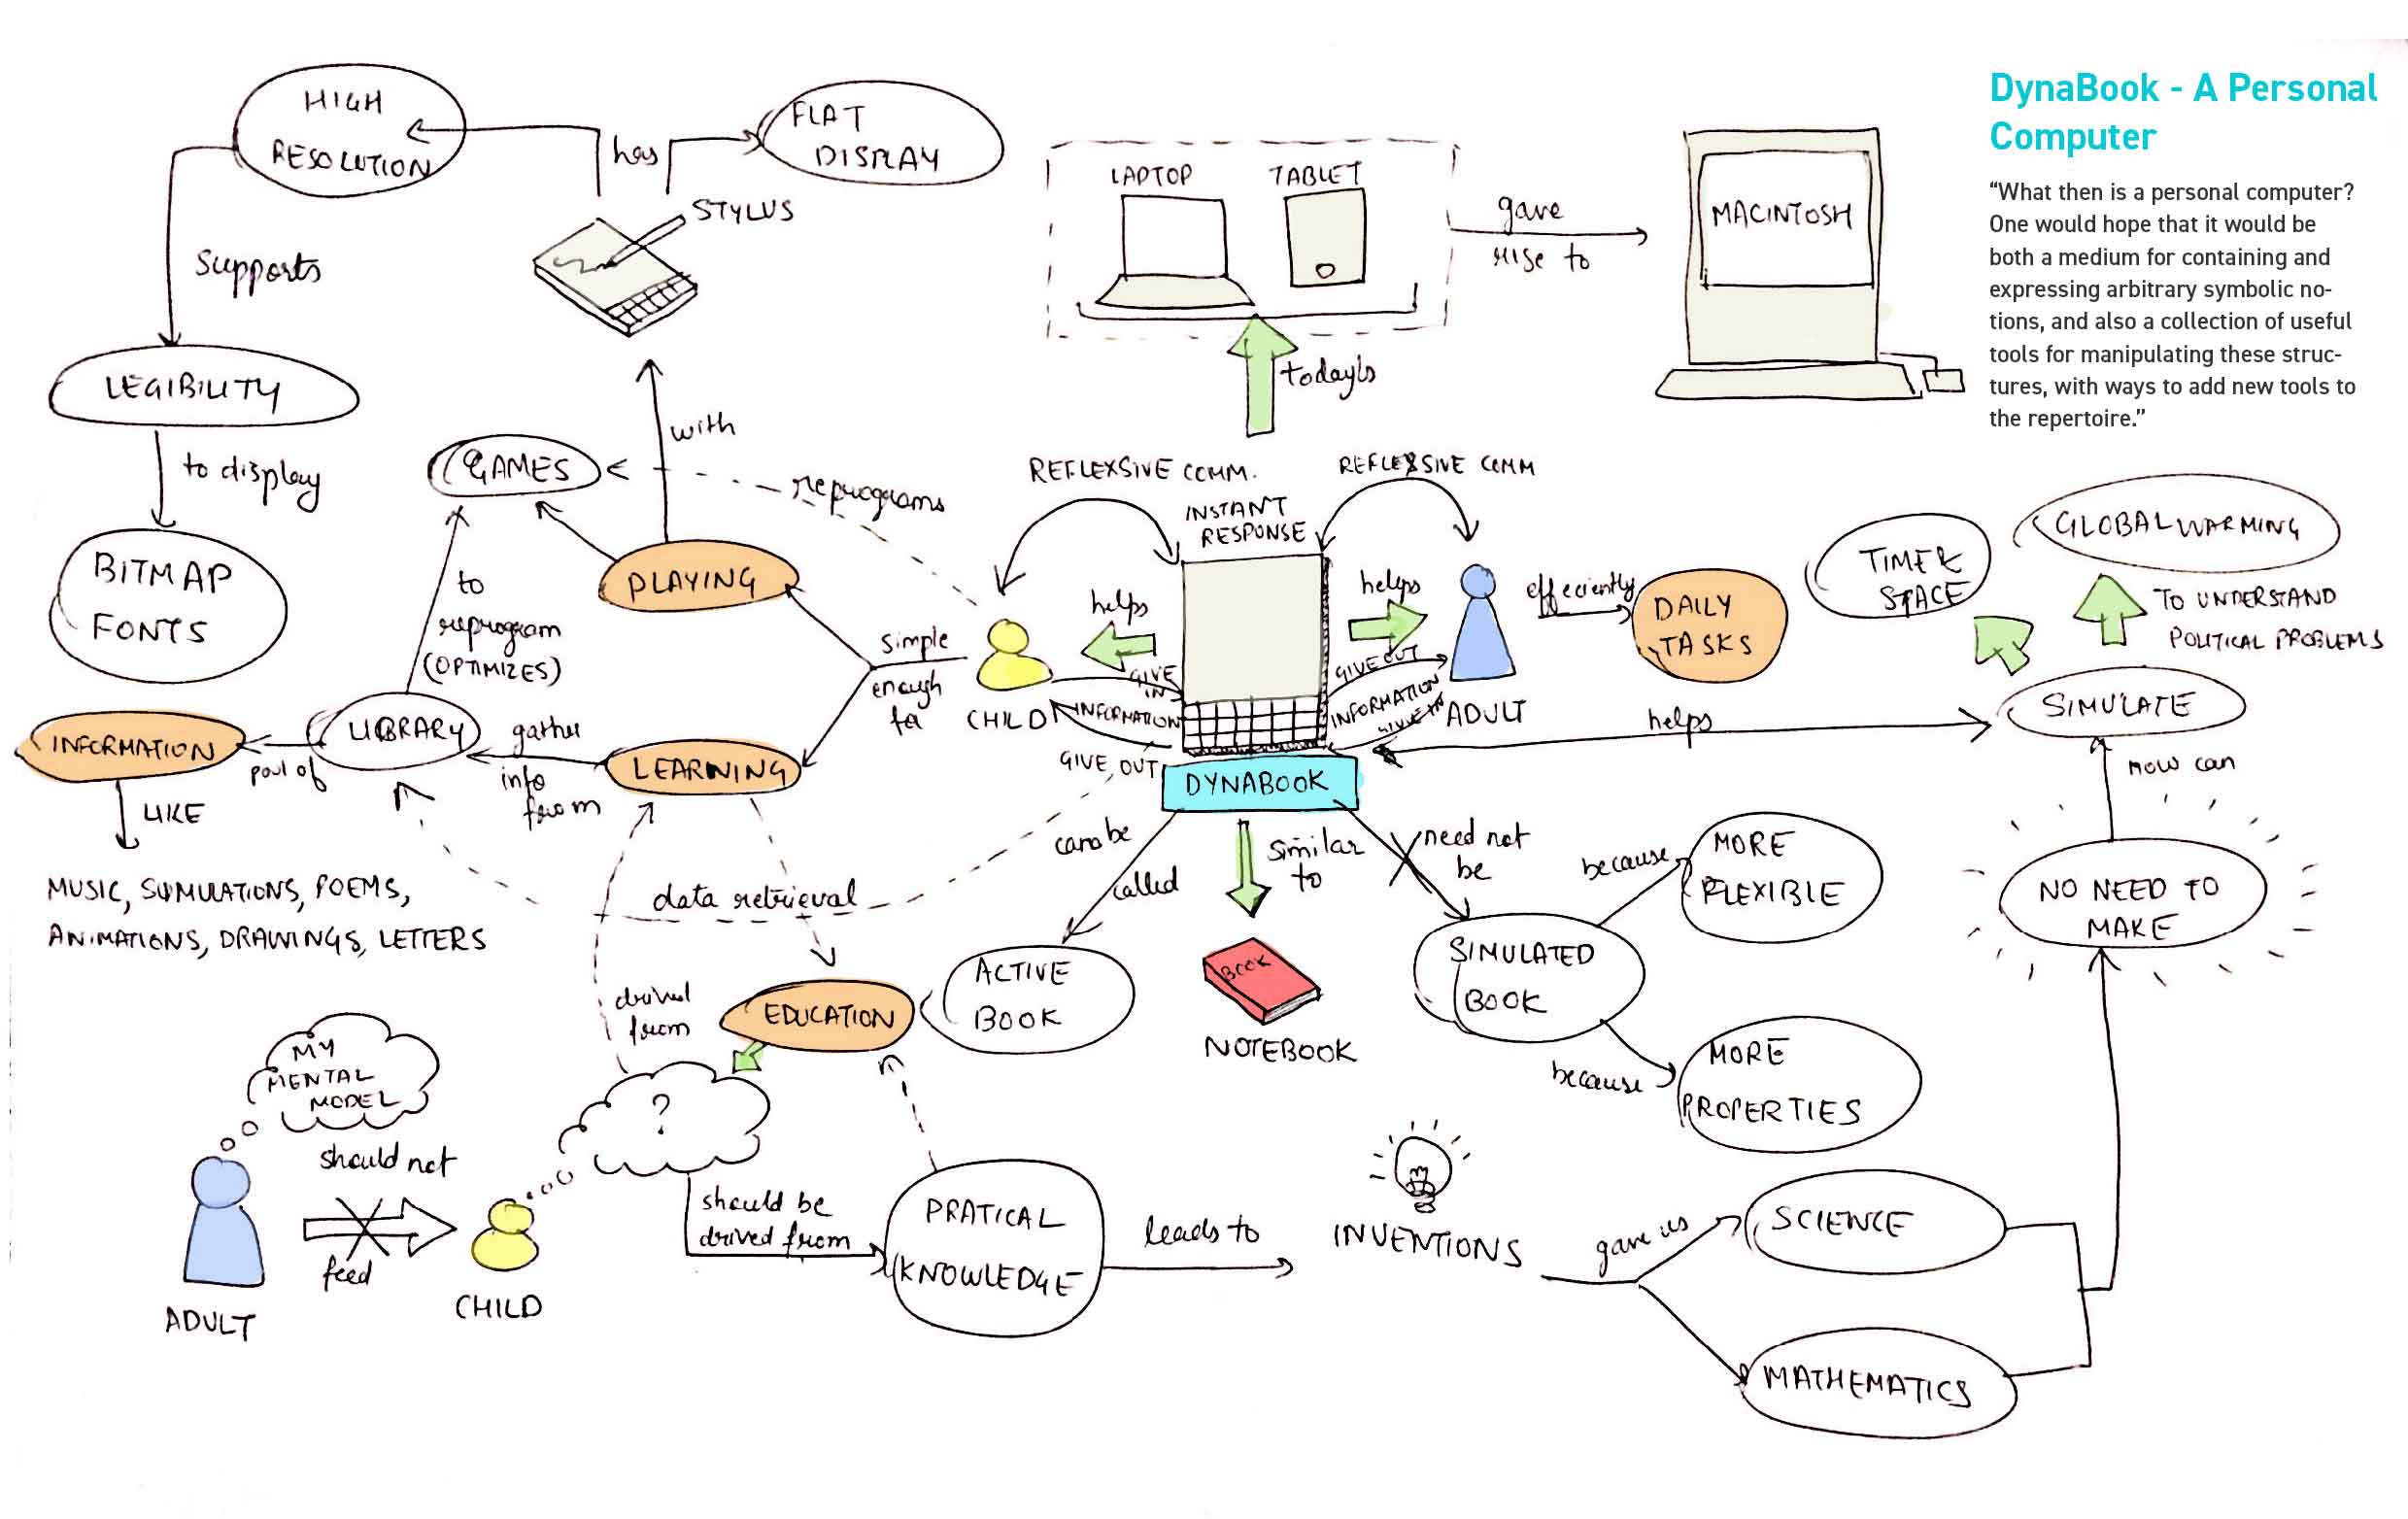 DynaBook - A Personal
Computer
“What then is a personal computer?
One would hope that it would be
both a medium for containing and
expressing arbitrary symbolic no-
tions, and also a collection of useful
tools for manipulating these struc-
tures, with ways to add new tools to
the repertoire.”
HIGH
RESOLUTION
has
FLAT
DISPLAY
STYLUS
supports
LEGIBILITY
to display
BITMAP
FONTS
LAPTOP
TABLET
gave
rise to
MACINTOSH
today's
with
GAMES
reprograms
to
reprogram
(OPTIMIZES)
PLAYING
simple
enough
for
CHILD
helps
REFLEXSIVE COMM.
REFLEXSIVE COMM
INSTANT
RESPONSE
helps
GIVE
IN
INFORMATION
GIVE OUT
GIVE OUT
INFORMATION
GIVE IN
ADULT
effeciently
DAILY
TASKS
TIME &
SPACE
GLOBAL WARMING
TO UNDERSTAND
POLITICAL PROBLEMS
SIMULATE
helps
now can
NO NEED TO
MAKE
INFORMATION
pool of
LIBRARY
gather
info
from
LEARNING
LIKE
MUSIC, SIMULATIONS, POEMS,
ANIMATIONS, DRAWINGS, LETTERS
data retrieval
DYNABOOK
can be
called
ACTIVE
BOOK
similar
to
BOOK
NOTEBOOK
need not
be
SIMULATED
BOOK
because
MORE
FLEXIBLE
because
MORE
PROPERTIES
EDUCATION
drived
from
?
MY
MENTAL
MODEL
should not
feed
ADULT
CHILD
should be
drived from
PRATICAL
KNOWLEDGE
leads to
INVENTIONS
gave us
SCIENCE
MATHEMATICS